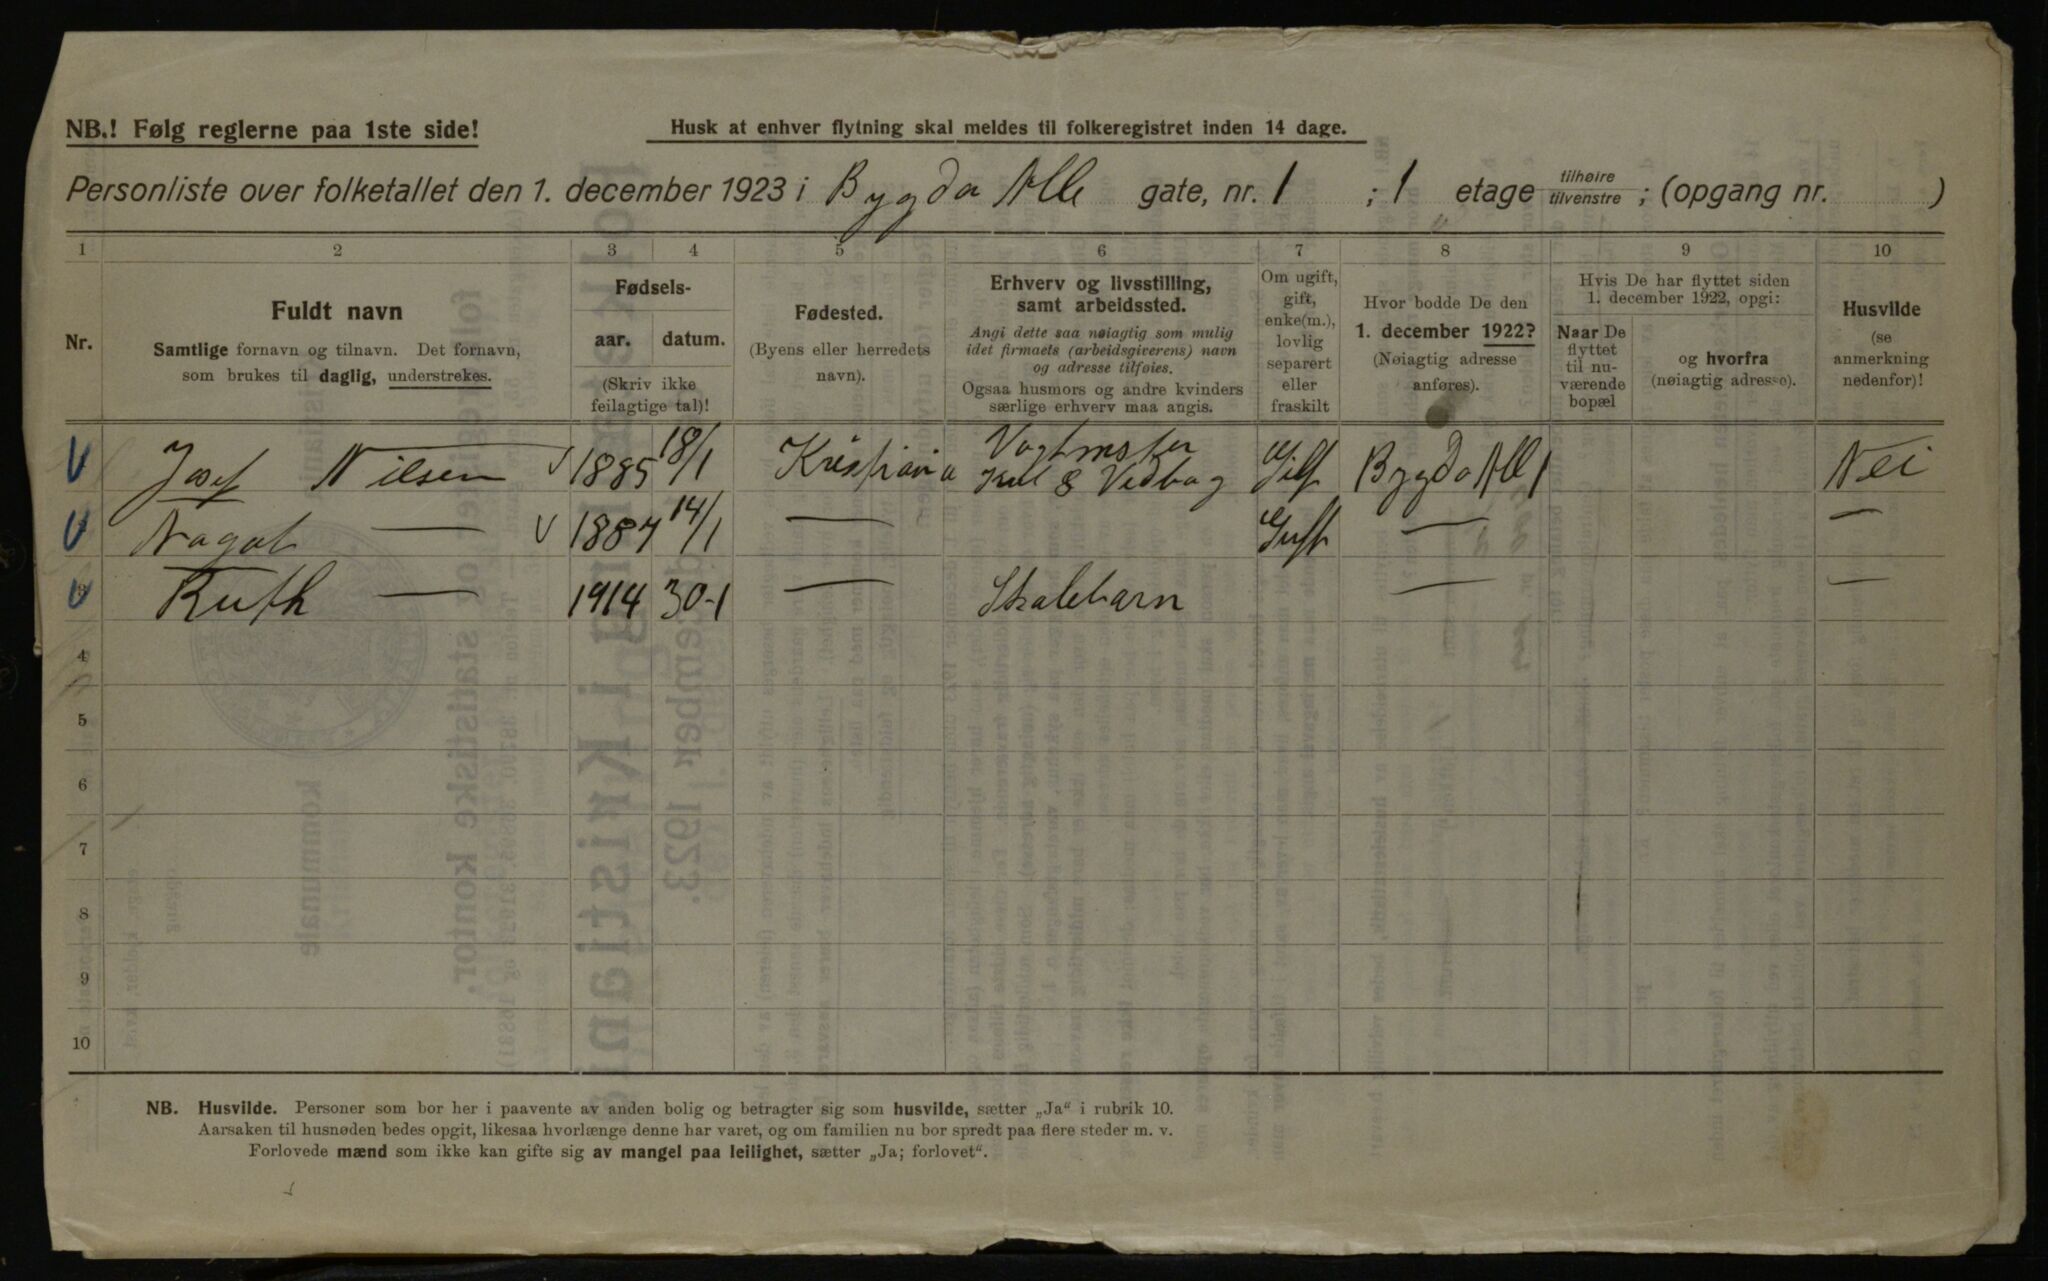 NB.! Følg reglerne paa 1ste side!
Husk at enhver flytning skal meldes til folkeregistret inden 14 dage.
Personliste over folketallet den 1. december 1923 i Bygdø Alle gate, nr. 1 ; 1 etage tilhøire tilvenstre ; (opgang nr. )
1 2 3 4 5 6 7 8 9 10
Nr.
Fuldt navn
Samtlige fornavn og tilnavn. Det fornavn,
som brukes til daglig, understrekes.
Fødsels-
aar. datum.
(Skriv ikke
feilagtige tal)!
Fødested.
(Byens eller herredets
navn).
Erhverv og livsstilling,
samt arbeidssted.
Angi dette saa nøiagtig som mulig
idet firmaets (arbeidsgiverens) navn
og adresse tilføies.
Ogsaa husmors og andre kvinders
særlige erhverv maa angis.
Om ugift,
gift,
enke(m.),
lovlig
separert
eller
fraskilt
Hvor bodde De den
1. december 1922?
(Nøiagtig adresse
anføres).
Hvis De har flyttet siden
1. december 1922, opgi:
Naar De
flyttet
til nu-
værende
bopæl
og hvorfra
(nøiagtig adresse).
Husvilde
(se
anmerkning
nedenfor)!
Josef Nilsen 1885 18/1 Kristiania Vogtmster Kul & Vedbag Gift Bygdø All 1 Nei
— 1887 14/1 — Gift — —
Ruth — 1914 30-1 — Skolebarn — —
4
5
6
7
8
9
10
NB. Husvilde. Personer som bor her i paavente av anden bolig og betragter sig som husvilde, sætter „Ja“ i rubrik 10.
Aarsaken til husnøden bedes opgit, likesaa hvorlænge denne har varet, og om familien nu bor spredt paa flere steder m. v.
Forlovede mænd som ikke kan gifte sig av mangel paa leilighet, sætter „Ja; forlovet“.